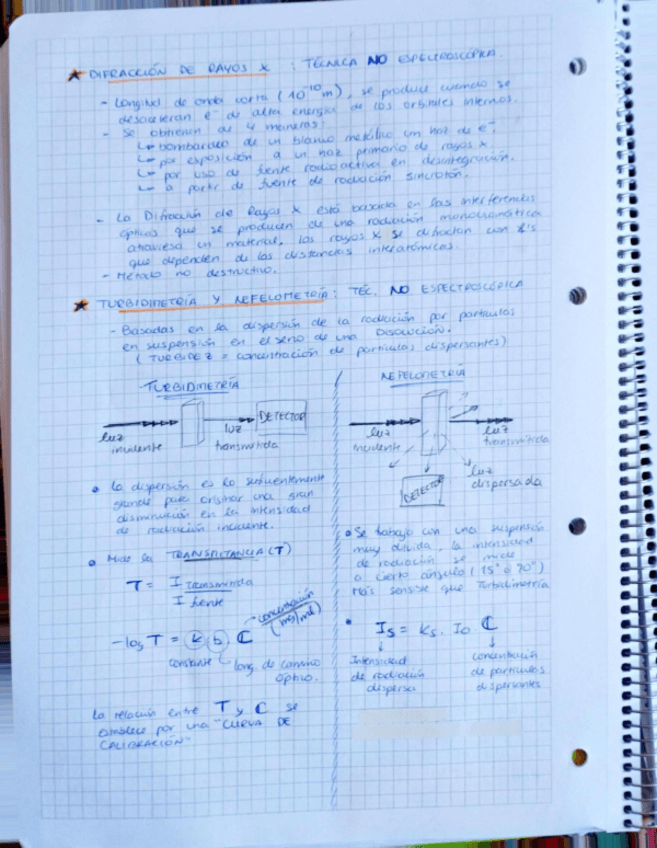 ★ DIFRACCIÓN DE RAYOS X : TÉCNICA NO ESPECTROSCÓPICA.
- Longitud de onda corta (10⁻¹⁰ m), se produce cuando se
desaceleran e⁻ de alta energía de los orbitales internos.
- Se obtienen de 4 maneras:
↳ bombardeo de un blanco metálico con haz de e⁻.
↳ por exposición a un haz primario de rayos x
↳ por uso de fuente radioactiva en desintegración.
↳ a partir de fuente de radiación sincrotón.
- La Difracción de Rayos X está basada en las interferencias
ópticas que se producen de una radiación monocromática
atraviesa un material, los rayos X se difractan con x's
que dependen de las distancias interatómicas.
- Método no destructivo.
★ TURBIDIMETRÍA Y NEFELOMETRÍA: TÉC. NO ESPECTROSCÓPICA
- Basadas en la dispersión de la radiación por partículas
en suspensión en el seno de una DISOLUCIÓN.
(TURBIDEZ = concentración de partículas dispersantes)
TURBIDIMETRÍA
luz
incidente
luz
transmitida
DETECTOR
• La dispersión es lo suficientemente
grande para originar una gran
disminución en la intensidad
de radiación incidente.
• Mide la TRANSMITANCIA (T)
T = I transmitida
I fuente
-log T = k b C
concentración
(mg/ml)
constante
long. de camino
óptico.
La relación entre T y C se
establece por una "CURVA DE
CALIBRACIÓN"
NEFELOMETRÍA
luz
incidente
luz
transmitida
luz
dispersada
DETECTOR
• Se trabaja con una suspensión
muy diluida, la intensidad
de radiación se mide
a cierto ángulo (15° o 90°)
Más sensible que Turbidimetría
• Is = Ks. Io C
Intensidad
de radiación
dispersa
concentración
de partículas
dispersantes